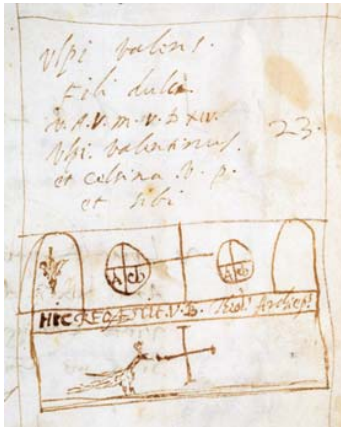 Ulpi valens.
Fili dulci
V. A. V. m. V. D XIV.
Ulpi. valentinus.
et celsina V. P.
et sibi
23.
A ω A ω
HIC REQVIESCIT. V. B. Archiepš